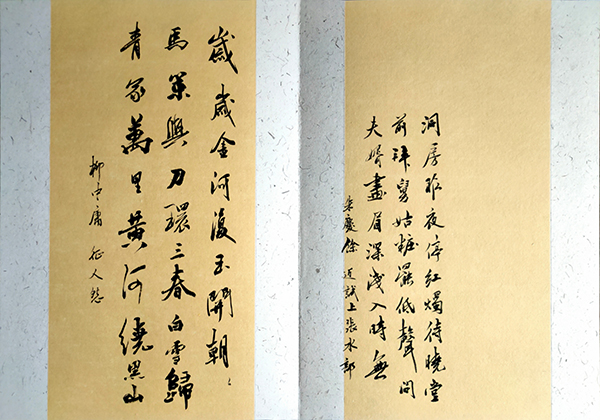 洞房昨夜停紅燭待曉堂
前拜舅姑粧罷低聲問
夫婿畫眉深淺入時無
朱慶餘 近試上張水部
歲歲金河復玉關朝々
馬策與刀環三春白雪歸
青冢萬里黃河繞黑山
柳中庸 征人怨